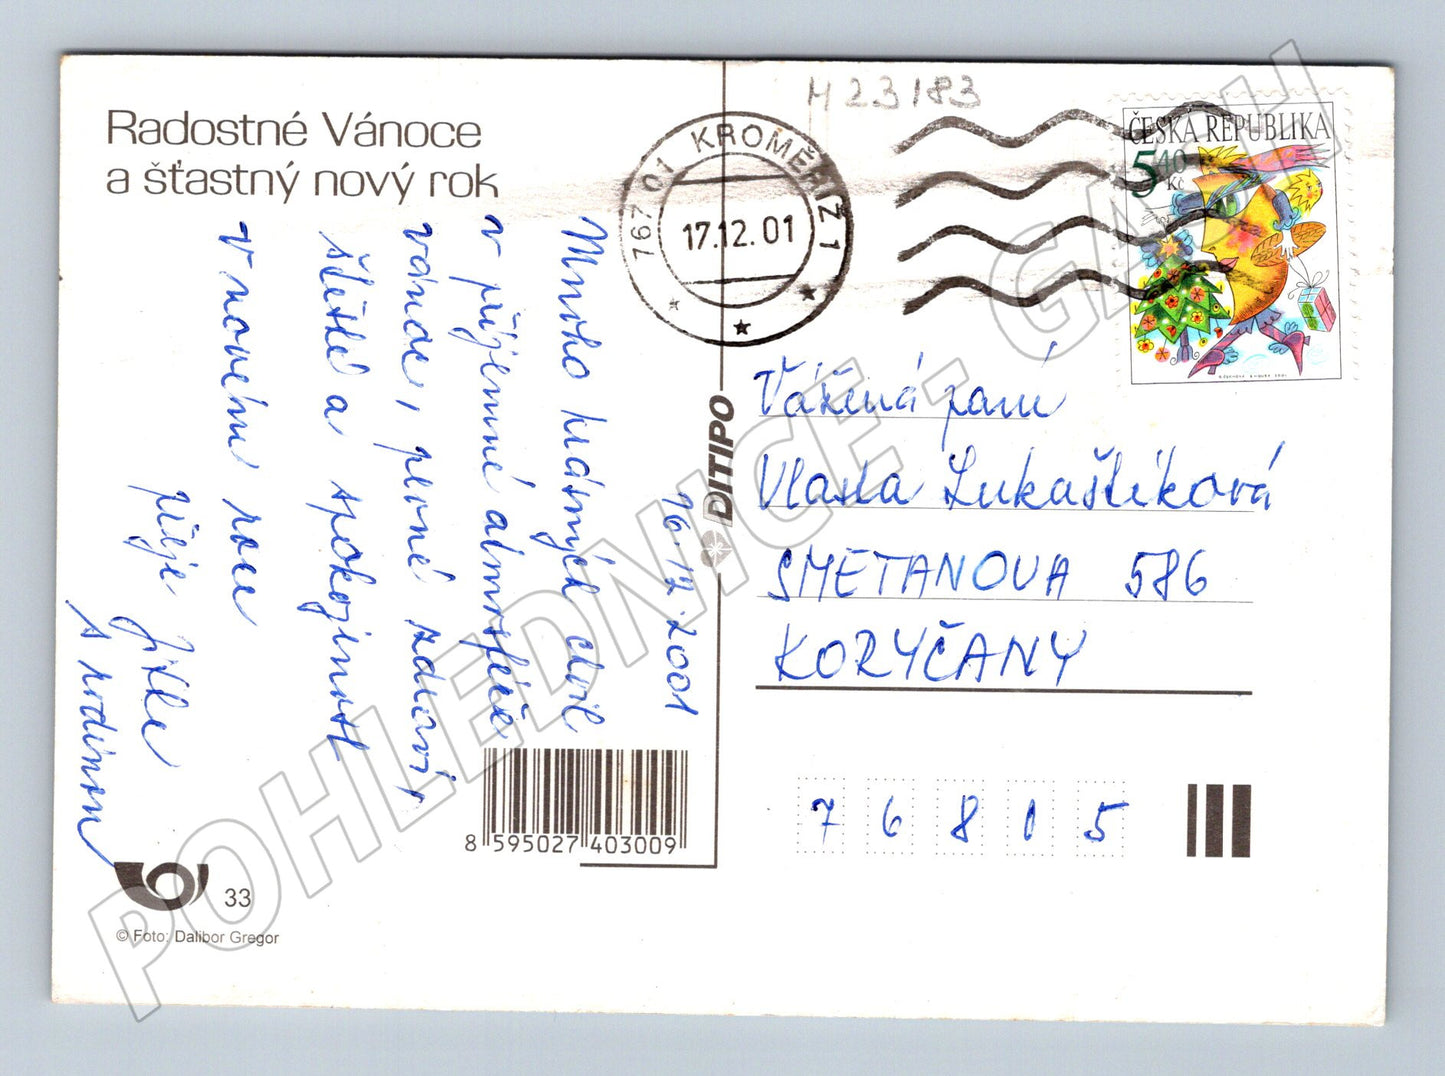 Radostné Vánoce
a šťastný nový rok
Mnoho krásných chvil
v příjemné atmosféře
vánoc, pevné zdraví,
štěstí a spokojenost
v novém roce
přeje Jitka
s rodinou
16.12.2001
M23183
767 01 KROMĚŘÍŽ 1
17.12.01
ČESKÁ REPUBLIKA
5 40
Kč
DITIPO
Vážená paní
Vlasta Lukaštíková
SMETANOVA 586
KORYČANY
76815
8 595027 403009
33
© Foto: Dalibor Gregor
POHLEDNICE - GASH